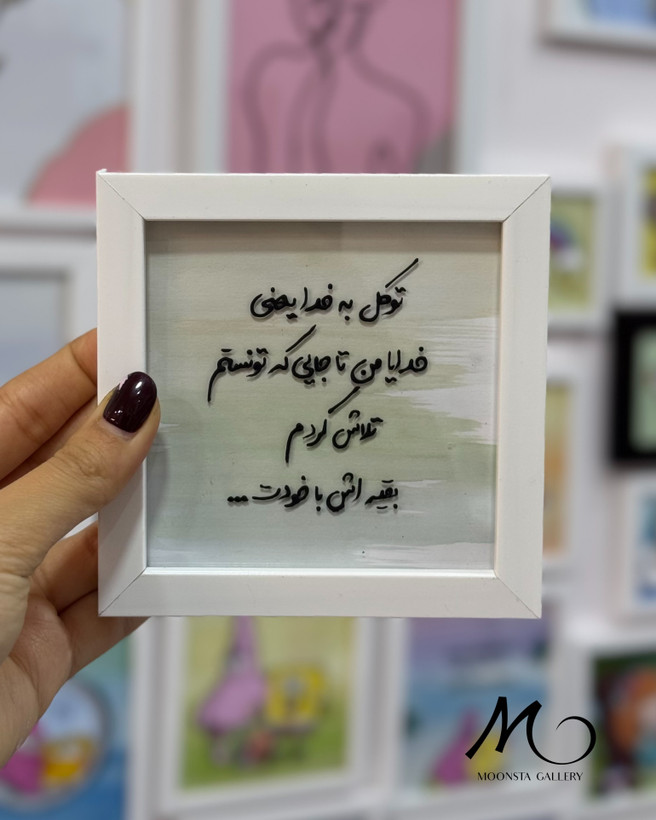 توکل به خدا یعنی
خدایا من تا جایی که تونستم
تلاش کردم
بقیه اش با خودت...
MOONSTA GALLERY